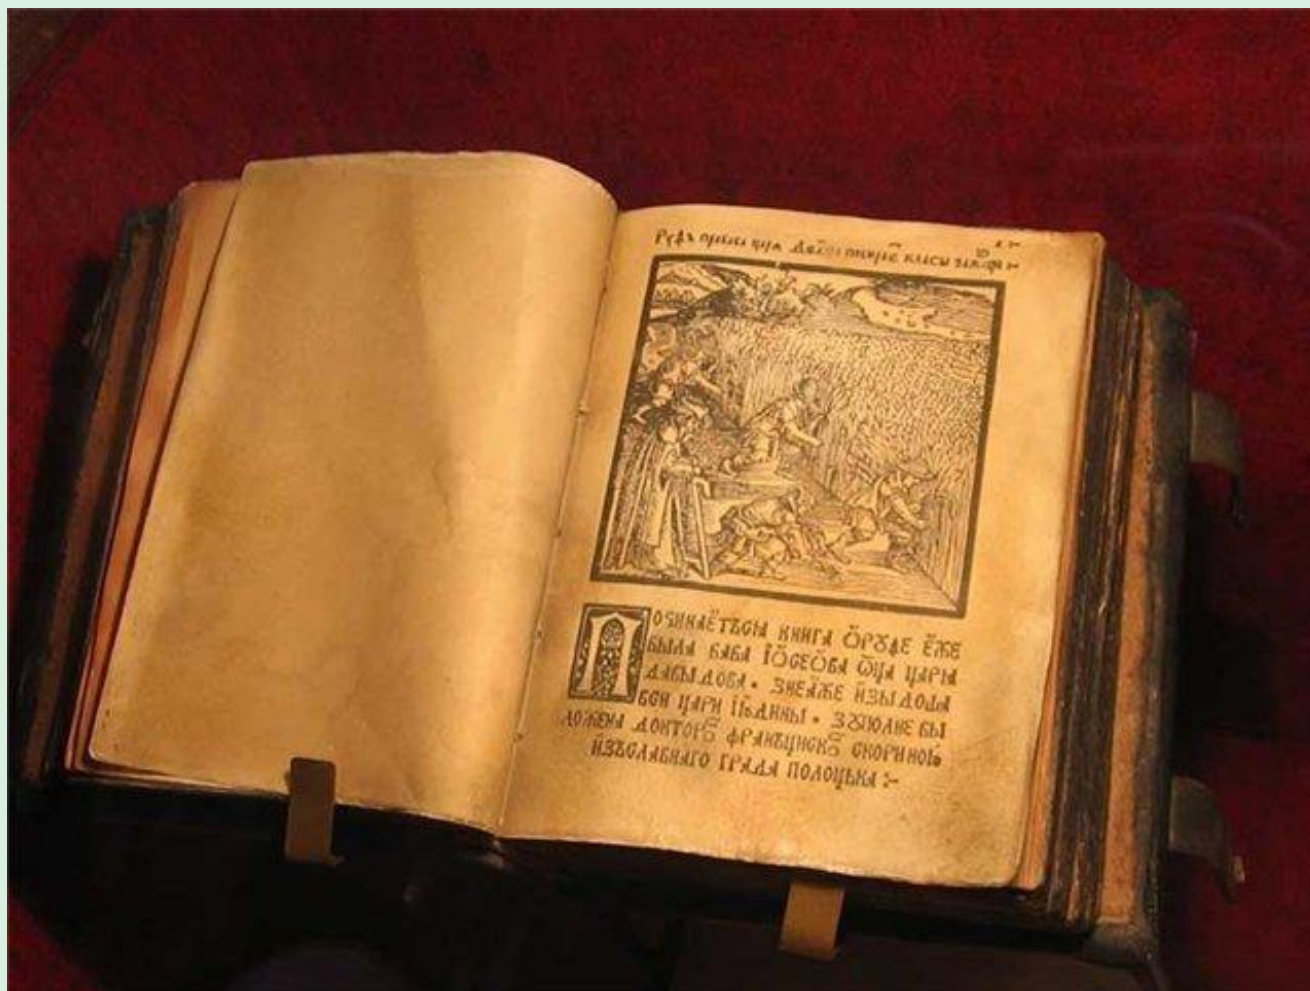 Руѳъ прабаба царя Двда пожинаѐ класы
ПОЧИНАЄТЬСЯ КНИГА Ѡ҆РУѲЕ Е҆ЖЕ
БЫЛА БАБА І҆Ѻ҆СЕѺ҆ВА ѾЦА ЦАРЯ
ДАВЫДОВА · ЗНЕЯ҆ЖЕ И҆ЗЫДОША
ВСИ ЦАРИ І҆Ю҆ДИНЫ · ЗУПОЛНЕ ВЫ
ЛОЖЕНА ДОКТОРО̅ ФРАНЪЦИСКО̅ СКОРИНОЮ
И҆ЗЪСЛАВНАГО ГРАДА ПОЛОЦЬКА :~